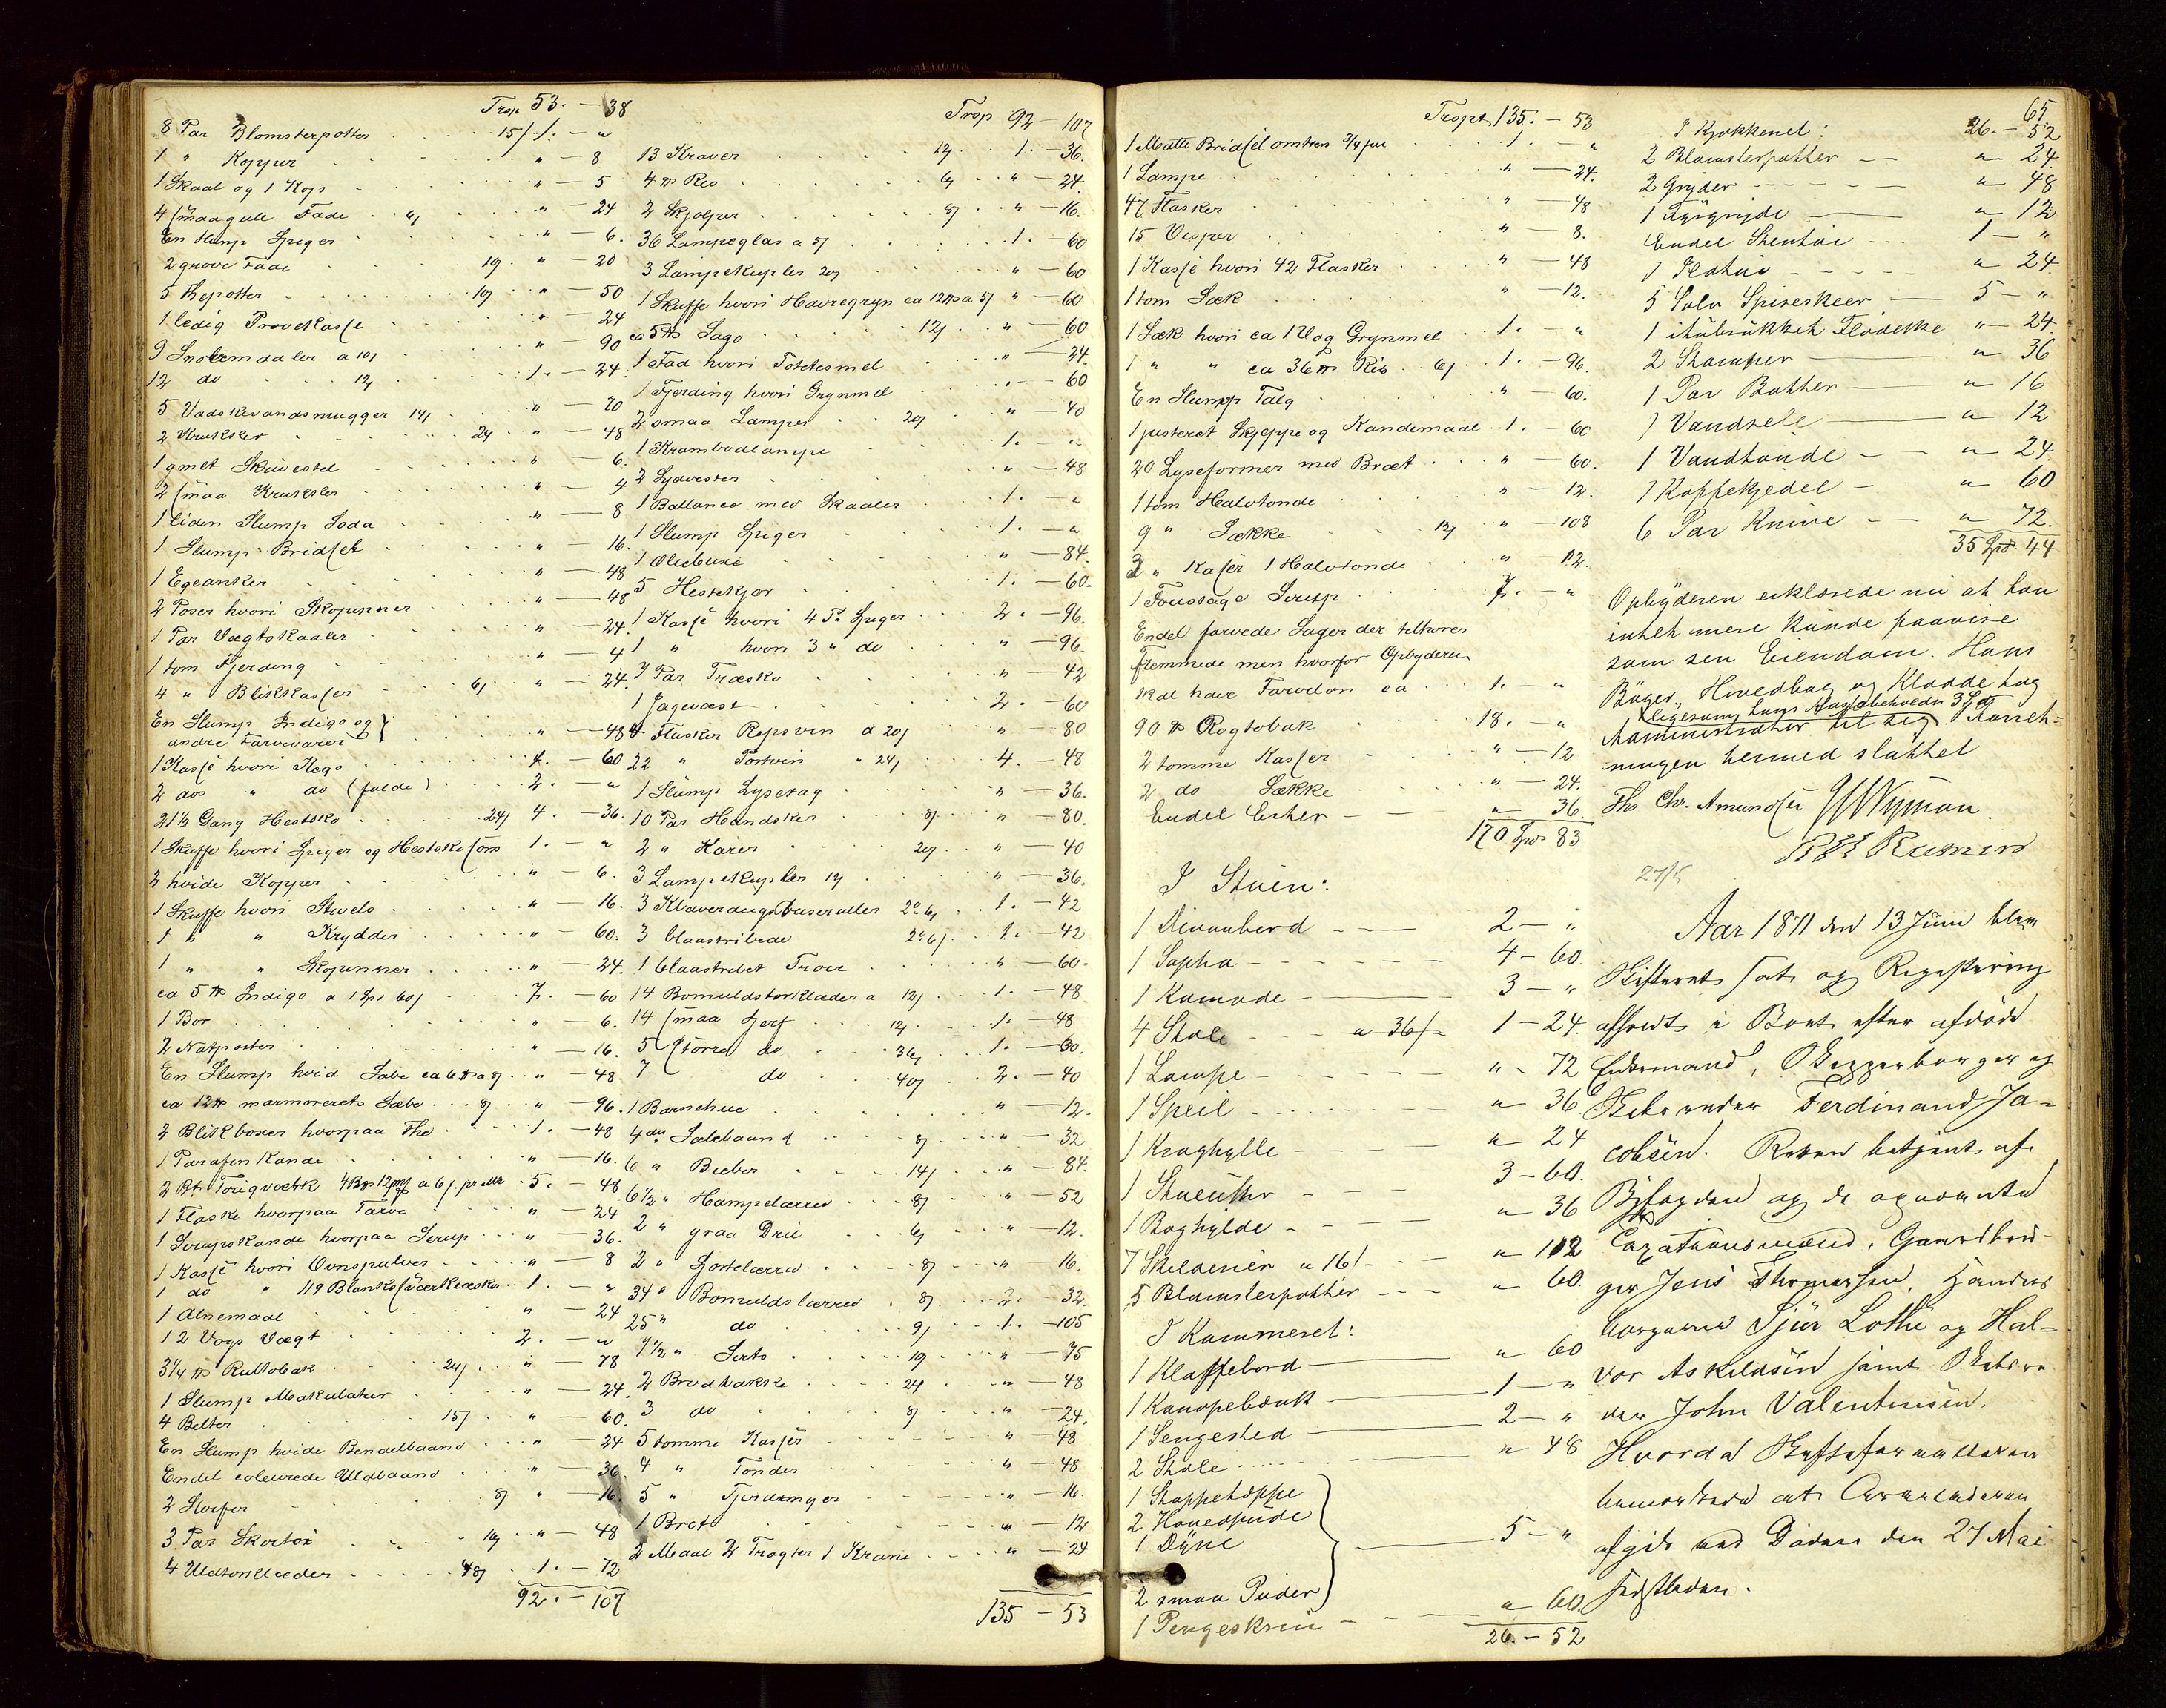 Trsp 53. — 38
8 Par Blomsterpotter 15/ 1. — "
1 " Kopper " — 8
1 Skaal og 1 Kop " — 5
4 smaa gule Fade 6/ " — 24
En Slump Spiger " — 6.
2 grove Fade 10/ " — 20
5 Thepotter 10/ " — 50
1 ledig Prøvekasse " — 24
9 Snøremaaler a 10/ " — 90
12 do 12/ 1. — 24.
5 Vadskevandsmugger 14/ " — 70
2 Krukker 24 " — 48
1 gmet Skrivestel " — 6.
2 smaa Krukker " — 4
1 liden Slump Soda " — 8
1 Slump Bridsel " — 16.
1 Egeanker " — 48
2 Poser hvori Skopinner " — 48
1 Par Vægtskaaler " — 24.
1 tom Fjerding " — 4
4 " Blikkasser 6/ " — 24.
En Slump Indigo og
andre Farvevarer " — 48
1 Kasse hvori Kego 4. — 60
2 dos " do (fulde) 2. — "
21½ Gang Hestsko 24/ 4. — 36.
1 Skuffe hvori Spiger og Hestskosøm 1. — "
2 hvide Kopper " — 6.
1 Skuffe hvori Stivels " — 16.
1 " " Krydder " — 60.
1 " " Skopinner " — 24.
ca 5 ℔ Indigo a 1 Spd 60/ 7. — 60
1 Bor " — 6.
2 Natpotter " — 16.
En Slump hvid Sæbe ca 6 ℔ a 8/ " — 48
ca 12 ℔ marmoreret Sæbe 8/ " — 96.
2 Blikboxer hvorpaa The 1. — 48
1 Parafin Kande " — 16.
2 Bt. Tougværk a 6/ pr Mk 5. — 48
1 Flaske hvorpaa Farve " — 24
1 Serupskande hvorpaa Serup " — 36.
1 Kasse hvori Ovnspulver " — 8
1 do " 119 Blanksværtæsker 1. — "
1 Alnemaal " — 24
1 2 Vogs Vægt 2. — "
3¼ ℔ Rultobak 24/ " — 78
1 Slump Makulatur " — 24.
4 Belter 15/ " — 60.
En Slump hvide Bendelbaand " — 24
Endel coleurede Uldbaand " — 36.
2 Sløifer 8/ " — 16.
3 Par Skortøi 16/ " — 48
4 Uldtørklæder 48/ 1. — 72
92. — 107
Trsp 92 — 107
13 Kraver 12/ 1. — 36.
4 ℔ Ris 6/ " — 24.
2 Skjolper 8/ " — 16.
36 Lampeglas a 5/ 1. — 60
3 Lampekupler 20/ " — 60
1 Skuffe hvori Havregryn ca 12 ℔ a 5/ " — 60
ca 5 ℔ Sago 12/ " — 60
1 Fad hvori Potetesmel " — 24.
1 Fjerding hvori Grynmel " — 60
2 smaa Lamper 20/ " — 40
1 Krambodlampe 1. — "
2 Sydvester " — 48
1 Ballance med Skaaler 1. — "
1 Slump Spiger 1. — "
1 Oliebuxe " — 84.
5 Hestekjør 1. — 60.
1 Kasse hvori 4 Ps Spiger 2. — 96.
1 " hvori 3 " do " — 96.
7 Par Træsko " — 42
1 Jagevæst 2. — 60
4 Flasker Repsvin a 20/ " — 80
22 " Portvin " 24/ 4. — 48
1 Slump Lysevæg " — 36.
10 Par Handsker 8/ " — 80.
2 " Karer 20/ " — 40
3 Lampekupler 12/ " — 36.
3 Klaverdugsbuseruller 1. — 42
3 blaastribede 1. — 42
1 blaastribet Troie " — 60.
14 Bomuldstørklæder a 12/ 1. — 48
14 smaa Sjerf 12/ 1. — 48
5 større do 36/ 1. — 60.
7 do 40/ 2. — 40
1 Barnehue " — 12.
4 al Sælebaand 8/ " — 32
6 " Bieber 14/ " — 84.
6½ " Hampelærred 8/ " — 52
2 " graa Dril 6/ " — 12.
2 " Hortelærred 8/ " — 16.
34 " Bomuldslærred 8/ 2. — 32.
25 " do 9/ 1. — 105
7½ " Sirts 10/ " — 75
2 Brødbakke 24 " — 48
3 do 8/ " — 24.
5 tomme Kasser " 48
4 " Tønder " — 48
5 " Fjerdinger " — 16.
1 Bret " — 12
2 Maal 2 Tragter 1 Krane " — 24
135 — 53
65
Trspt 135. — 53
1 Matte Bridsel omtren ¾ ful 1. — "
1 Lampe " — 24.
47 Flasker " — 48
15 Vesper " — 8.
1 Kasse hvori 42 Flasker " — 48
1 tom Sæk " — 12.
1 Sæk hvori ca 1 Vog Grynmel 1. — "
1 " " ca 36 ℔ Ris 6/ 1. — 96.
En Slump Talg " — 60.
1 justeret Skjeppe og Kandemaal 1. — 60
20 Lyseformer med Bræt " — 60.
1 tom Halvtønde " — 12.
9 " Sække 12/ " — 108
3 " Kasser 1 Halvtønde " — 12.
1 Foustage Serup 7. — "
Endel farvede Sager der tilhører
Fremmede men hvorfor Opbyderen
skal have Farveløn ca 1. — "
90 ℔ Røgtobak 18. — "
2 tomme Kasser " — 12
2 do Sække " — 24.
Endel Esker " — 36.
170 Spd 83
I Stuen:
1 Divanbord 2 — "
1 Sopha 4 — 60.
1 Komode 3 — "
4 Stole a 36/ 1 — 24.
1 Lampe " — 72
1 Speil " — 36
1 Kraghylle " — 24
1 Stueuhr 3 — 60.
1 Boghylde " — 36
7 Skilderier a 16/ " — 112
5 Blomsterpotter " — 60.
I Kammeret:
1 Klaffebord " 60
1 Kanapebænk 1 — "
1 Sengested 2 — "
2 Stole " 48
1 Stoppetæppe
2 Hovedpude
1 Dyne 5 — "
2 smaa Puder
1 Pengeskrin " 60.
26. — 52
I Kjøkkenet: 26. — 52
2 Blomsterpotter " 24
2 Gryder " 48
1 Fyrgryde " 12
Endel Stentøi 1 — "
1 Ildtøi " 24
5 Sølv Spiseskeer 5 — "
1 itubrukket Flødeske " — 24.
2 Stamper " 36
1 Par Bøtter " 16
1 Vandsele " 12
1 Vandtønde " 24.
1 Kaffekjedel " 60
6 Par Knive " 72.
35 Spd. 44
Opbyderen erklærede nu at han
intet mere kunde paavise
som sin Eiendom. Hans
Bøger, Hovedbog og Kladde tog
ligesom hans Kassebehold 3 Spd
Administrator til sig. Forret=
ningen hermed sluttet
Ths Chr. Amundsen
27/5
Aar 1871 den 13 Juni blev
Skifteret sat og Registrering
afholdt i Boet efter afdøde
Enkemand, og
Ferdinand Ja=
cobsen. Retten betjent af
Byfogden og de opnævnte
Taxationsmænd, Gaardbru-
ger Jens Thomassen, Handels
borgerne Sjur Lothe og Hal=
vor Askildsen samt
John Valentinsen.
Hvorda Skifteforvalteren
bemærkede at
afgik ved Døden den 27 Mai
sidstleden.